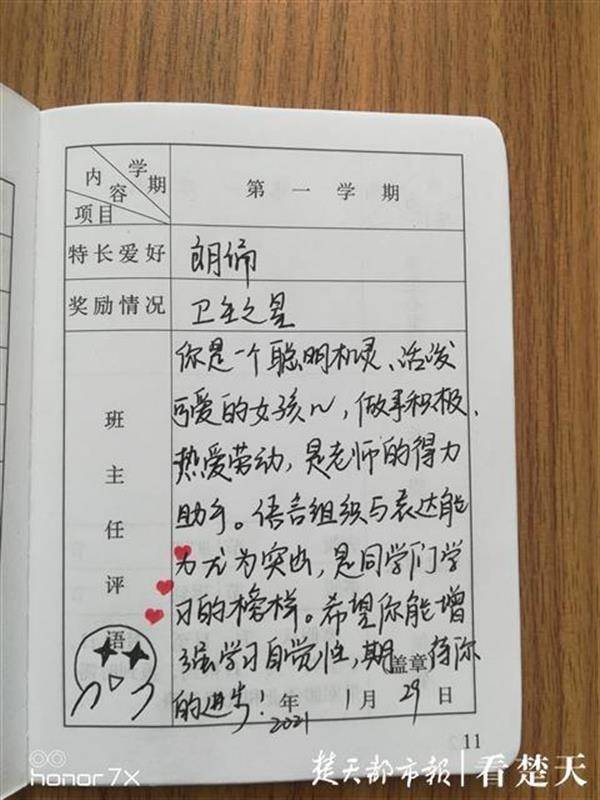 学期
内容
项目
第一学期
特长爱好 朗诵
奖励情况 卫生之星
班主任评语
你是一个聪明机灵、活泼
可爱的女孩儿，做事积极、
热爱劳动，是老师的得力
助手。语言组织与表达能
力尤为突出，是同学们学
习的榜样。希望你能增
强学习自觉性，期待你
(盖章)
的进步！
2021年1月29日
11
honor 7X
楚天都市报 看楚天